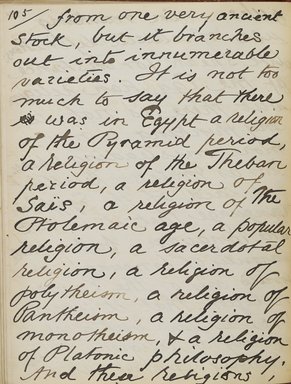 105/ from one very ancient
stock, but it branches
out into innumerable
varieties. It is not too
much to say that there
was in Egypt a religion
of the Pyramid period,
a religion of the Theban
period, a religion of
Sais, a religion of the
Ptolemaic age, a popular
religion, a sacerdotal
religion, a religion of
polytheism, a religion of
Pantheism, a religion of
monotheism, & a religion
of Platonic philosophy.
And these religions,